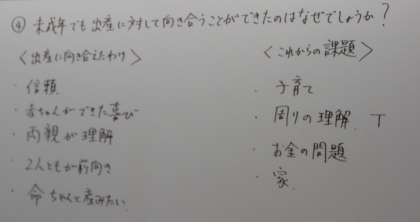 ④ 未成年でも出産に対して向き合うことができたのはなぜでしょうか?
<出産に向き合えたわけ>
・信頼
・赤ちゃんができた喜び
・両親が理解
・2人ともが前向き
・命 ちゃんと産みたい
<これからの課題>
・子育て
・周りの理解 T
・お金の問題
・家